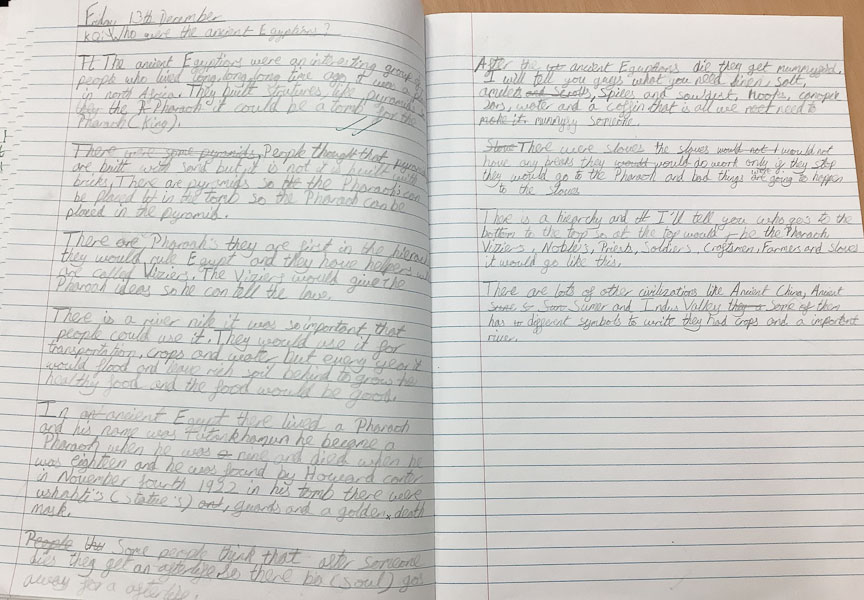 Friday 13th December
KQ: Who were the ancient Egyptians?
The ancient Egyptians were an interesting group of
people who lived long, long, long time ago it was a
in north Africa. They built strutures like pyramids,
the Pharaoh it could be a tomb for the
Pharaoh (King).
There were some pyramids, People thought that pyramids
are built with sand but it is not it is built with
bricks, There are pyramids so the Pharaoh's can
be placed in the tomb so the Pharaoh can be
placed in the pyramid.
There are Pharaoh's they are first in the
they would rule Egypt and they have helpers
are called Viziers. The Viziers would give the
Pharaoh ideas so he can tell the
There is a river nile it was so important that
people could use it. They would use it for
transportation, crops and water but every year it
would flood and leave rich soil behind to grow the
healthy food and the food would be good.
In ancient Egypt there lived a Pharaoh
and his name was Tutankhamun he became a
Pharaoh when he was nine and died when he
was eighteen and he was found by Howard carter
in November fourth 1922 in his tomb there were
ushabti's (statue's) and, guards and a golden death
mask.
People Some people think that after someone
dies they get an afterlife, so there ba (soul) goes
away for a afterlife.
After the ancient Egyptians die they get mummyfied,
I will tell you guys what you need linen, salt,
amulet and Scrolls, Spices and sawdust, Hooks, canopic
Jars, water and a coffin that is all we need to
make it. mummyfy someone.
Slave There were slaves the slaves would not I would not
have any breaks they would would do work only if they stop
they would go to the Pharaoh and bad things were going to happen
to the slaves
There is a hierarchy and I'll tell you who goes to the
bottom to the top so at the top would be the Pharaoh
Viziers, Noble's, Priests, Soldiers, Craftsmen, Farmers and Slaves
it would go like this.
There are lots of other civilizations like Ancient China, Ancient
Sumer and Indus Valley they Some of them
has different symbols to write they had crops and a important
river.